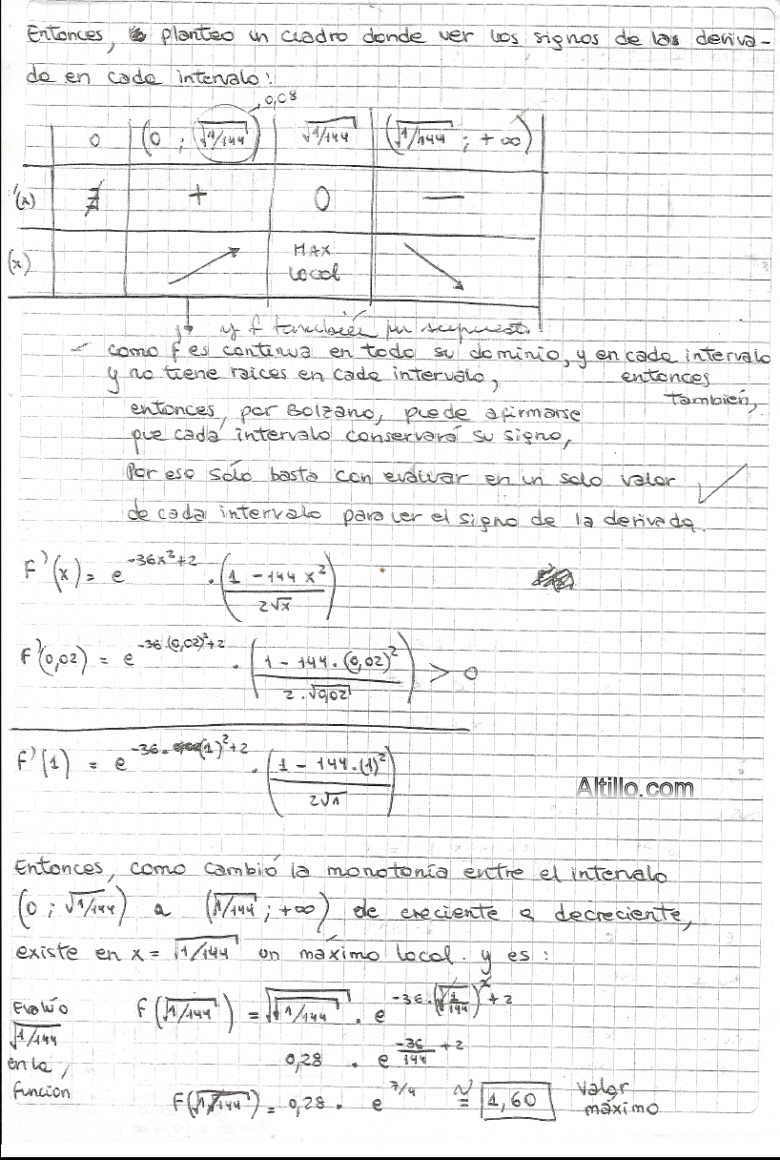 Entonces, planteo un cuadro donde ver los signos de las deriva-
da en cada intervalo:
0,08
0 (0 ; √1/144) √1/144 (√1/144 ; +∞)
'(x) ∄ + 0 —
(x) ↗ MAX Local ↘
y f también por supuesto.
como f es continua en todo su dominio, y en cada intervalo
y no tiene raíces en cada intervalo, entonces
también,
entonces, por Bolzano, puede afirmarse
que cada intervalo conservará su signo,
Por eso sólo basta con evaluar en un solo valor
de cada intervalo para ver el signo de la derivada.
F'(x) = e^(-36x²+2) . ((1 - 144 x²)/(2√x))
F'(0,02) = e^(-36.(0,02)²+2) . ((1 - 144.(0,02)²)/(2.√0,02)) > 0
F'(1) = e^(-36.(1)²+2) . ((1 - 144.(1)²)/(2√1))
Altillo.com
Entonces, como cambió la monotonía entre el intervalo
(0 ; √1/144) a (√1/144 ; +∞) de creciente a decreciente,
existe en x = √1/144 un máximo local. y es:
Evalúo
√1/144
en la,
función
F(√1/144) = √√1/144 . e^(-36.(√1/144)²+2)
0,28 . e^(-36/144 +2)
F(√1/144) = 0,28 . e^(7/4) ≅ 1,60 valor
máximo